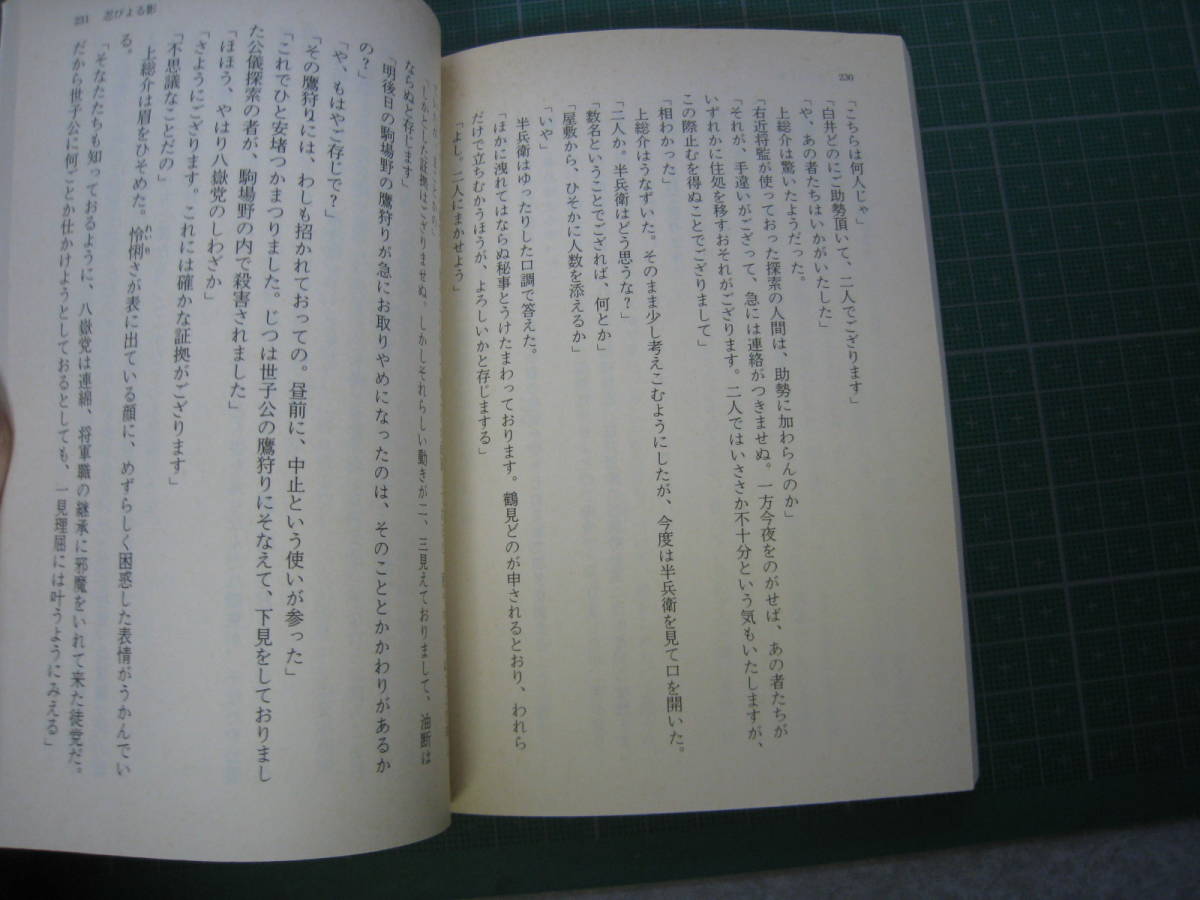 230
「こちらは何人じゃ」
「白井どのにご助勢頂いて、二人でござります」
「や、あの者たちはいかがいたした」
上総介は驚いたようだった。
「右近将監が使っておった探索の人間は、助勢に加わらんのか」
「それが、手違いがござって、急には連絡がつきませぬ。一方今夜をのがせば、あの者たちが
いずれかに住処を移すおそれがござります。二人ではいささか不十分という気もいたしますが、
この際止むを得ぬことでござりまして」
「相わかった」
上総介はうなずいた。そのまま少し考えこむようにしたが、今度は半兵衛を見て口を開いた。
「二人か。半兵衛はどう思うな？」
「数名ということでござれば、何とか」
「屋敷から、ひそかに人数を添えるか」
「いや」
半兵衛はゆったりした口調で答えた。
「ほかに洩れてはならぬ秘事とうけたまわっております。鶴見どのが申されるとおり、われら
だけで立ちむかうほうが、よろしいかと存じまする」
「よし。二人にまかせよう」
231 忍びよる影
「しかとした証拠はござりませぬ。しかしそれらしい動きが二、三見えておりまして、油断は
ならぬと存じます」
「明後日の駒場野の鷹狩りが急にお取りやめになったのは、そのこととかかわりがあるか
の？」
「や、もはやご存じで？」
「その鷹狩りには、わしも招かれておっての。昼前に、中止という使いが参った」
「これでひと安堵つかまつりました。じつは世子公の鷹狩りにそなえて、下見をしておりまし
た公儀探索の者が、駒場野の内で殺害されました」
「ほほう、やはり八嶽党のしわざか」
「さようにござります。これには確かな証拠がござります」
「不思議なことだの」
上総介は眉をひそめた。怜悧さが表に出ている顔に、めずらしく困惑した表情がうかんでい
る。
「そなたたちも知っておるように、八嶽党は連綿、将軍職の継承に邪魔をいれて来た徒党だ。
だから世子公に何ごとか仕かけようとしておるとしても、一見理屈には叶うようにみえる」